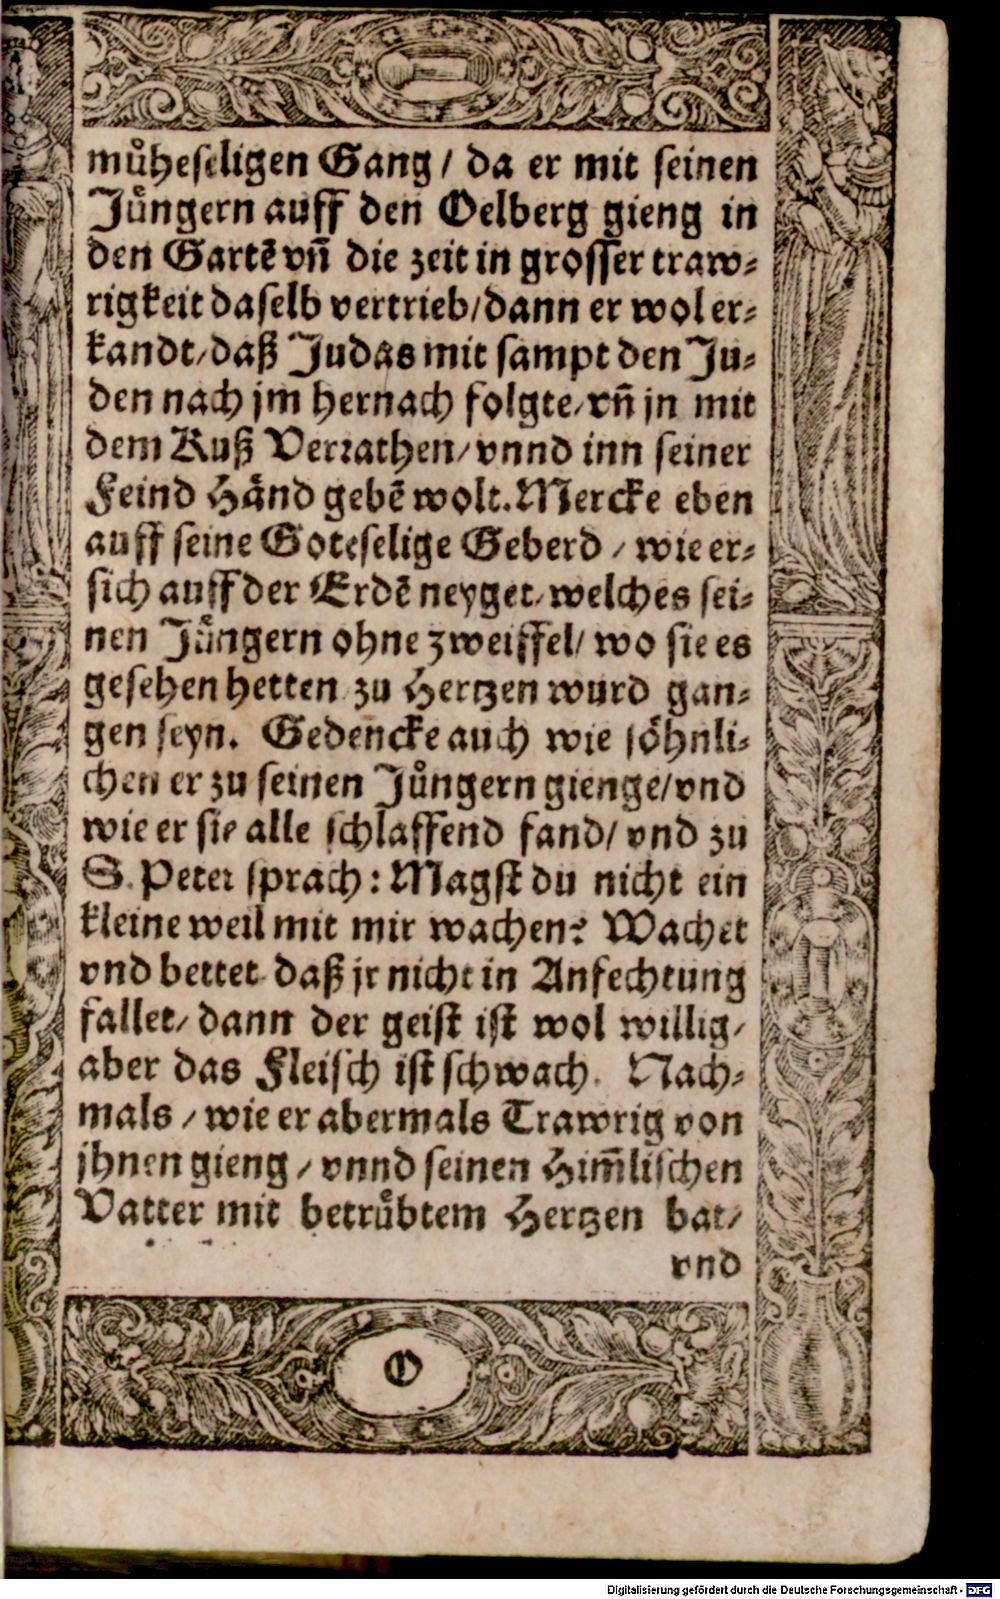 muͤheseligen Gang / da er mit seinen
Juͤngern auff den Oelberg gieng in
den Gartẽ vñ die zeit in grosser traw⸗
rigkeit daselb vertrieb / dann er wol er⸗
kandt / daß Judas mit sampt den Ju⸗
den nach jm hernach folgte / vñ jn mit
dem Kuß Verrathen / vnnd inn seiner
Feind Haͤnd gebẽ wolt. Mercke eben
auff seine Gotteselige Geberd / wie er⸗
sich auff der Erdẽ neyget / welches sei⸗
nen Juͤngern ohne zweiffel / wo sie es
gesehen hetten zu Hertzen wurd gan⸗
gen seyn. Gedencke auch wie söhnli⸗
chen er zu seinen Juͤngern gienge / vnd
wie er sie alle schlaffend fand / vnd zu
S. Peter sprach: Magst du nicht ein
kleine weil mit mir wachen? Wachet
vnd bettet daß jr nicht in Anfechtung
fallet / dann der geist ist wol willig /
aber das Fleisch ist schwach. Nach⸗
mals / wie er abermals Trawrig von
jhnen gieng / vnnd seinen Him̃lischen
Vatter mit betruͤbtem Hertzen bat /
vnd
O
Digitalisierung gefördert durch die Deutsche Forschungsgemeinschaft - DFG